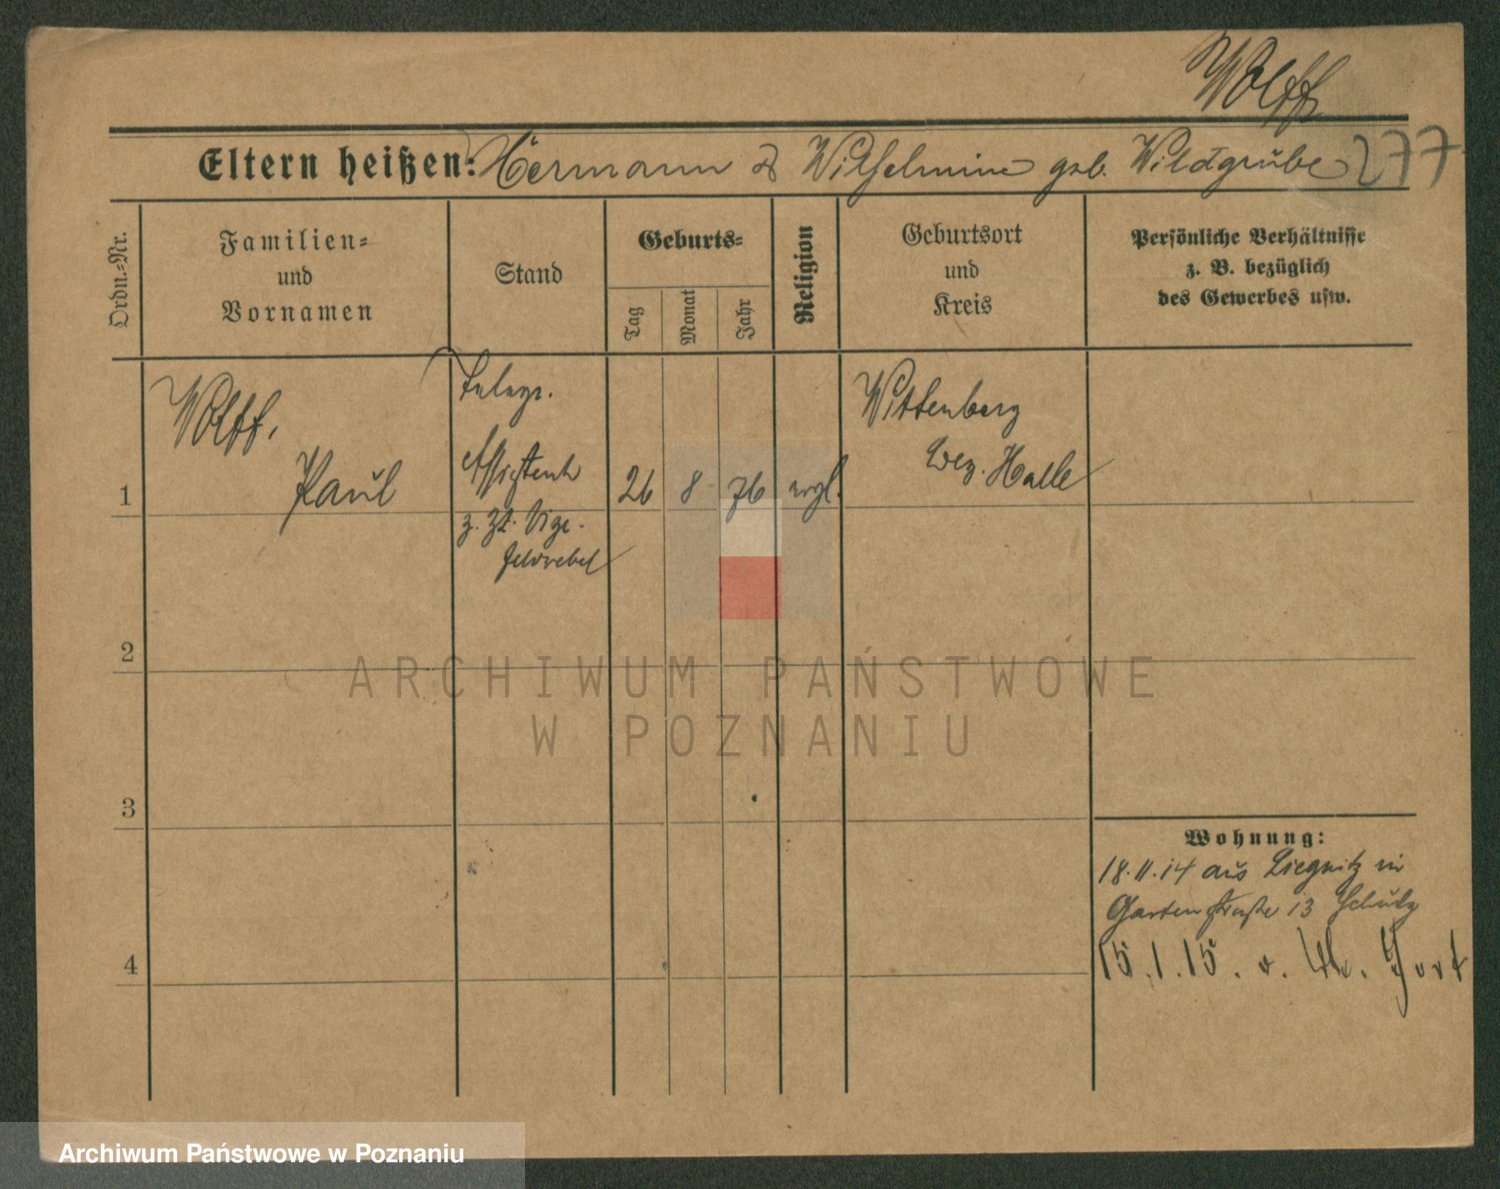 Wolff
Eltern heißen: Hermann & Wilhelmine geb. Wildgrube 277
Ordn.-Nr.
Familien-
und
Vornamen
Stand
Geburts-
Tag
Monat
Jahr
Religion
Geburtsort
und
Kreis
Persönliche Verhältnisse
z. B. bezüglich
des Gewerbes usw.
1
Wolff,
Paul
Telegr.
Assistent
z. Zt. Vize-
feldwebel
26
8
76
evgl.
Wittenberg
Bez. Halle
2
ARCHIWUM PAŃSTWOWE
W POZNANIU
3
Wohnung:
18.11.14 aus Liegnitz in
Gartenstraße 13 Schulz
4
15.1.15. fort
Archiwum Państwowe w Poznaniu